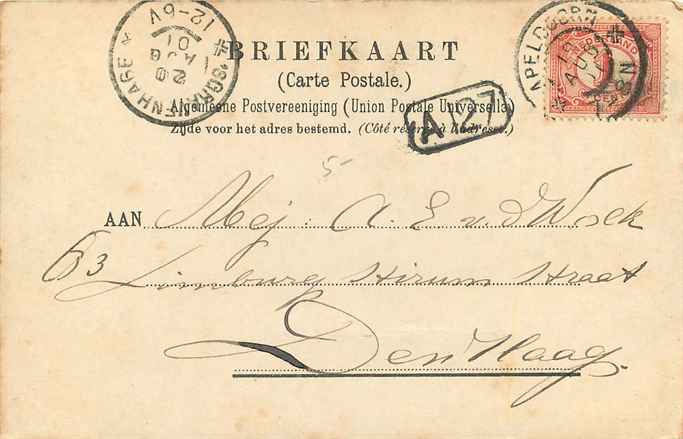 BRIEFKAART
(Carte Postale.)
Algemeene Postvereeniging (Union Postale Universelle)
Zijde voor het adres bestemd. (Côté réservé à l'adresse.)
'S GRAVENHAGE
12-6V
20 AUG 01
APELDOORN
AUG
8-12N
A 27
5-
AAN Mej: A. E. v. d. Worek
63 Limburg Stirum Straat
Den Haag.